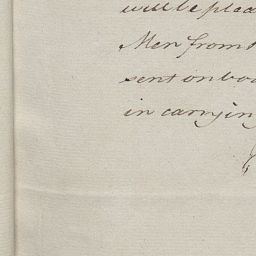 will be plea
Men from
sent on boa
in carrying